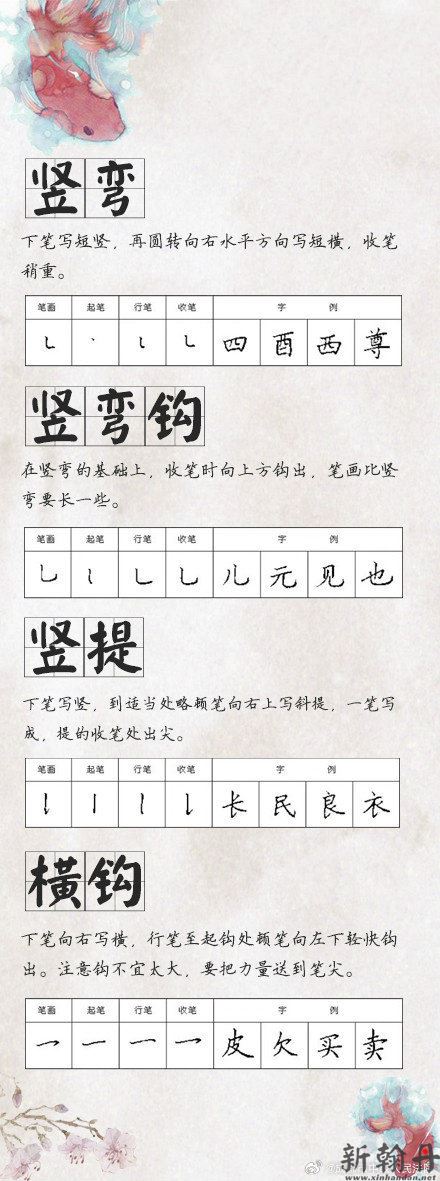 竖弯
下笔写短竖，再圆转向右水平方向写短横，收笔
稍重。
笔画 起笔 行笔 收笔 字 例
四 酉 西 尊
竖弯钩
在竖弯的基础上，收笔时向上方钩出，笔画比竖
弯要长一些。
笔画 起笔 行笔 收笔 字 例
儿 元 见 也
竖提
下笔写竖，到适当处略顿笔向右上写斜提，一笔写
成，提的收笔处出尖。
笔画 起笔 行笔 收笔 字 例
长 民 良 衣
横钩
下笔向右写横，行笔至起钩处顿笔向左下轻快钩
出。注意钩不宜太大，要把力量送到笔尖。
笔画 起笔 行笔 收笔 字 例
皮 欠 买 卖
新翰丹
www.xinhandan.net